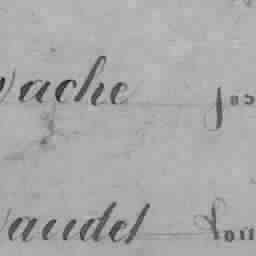 Vache Jos
Vaudel Lou